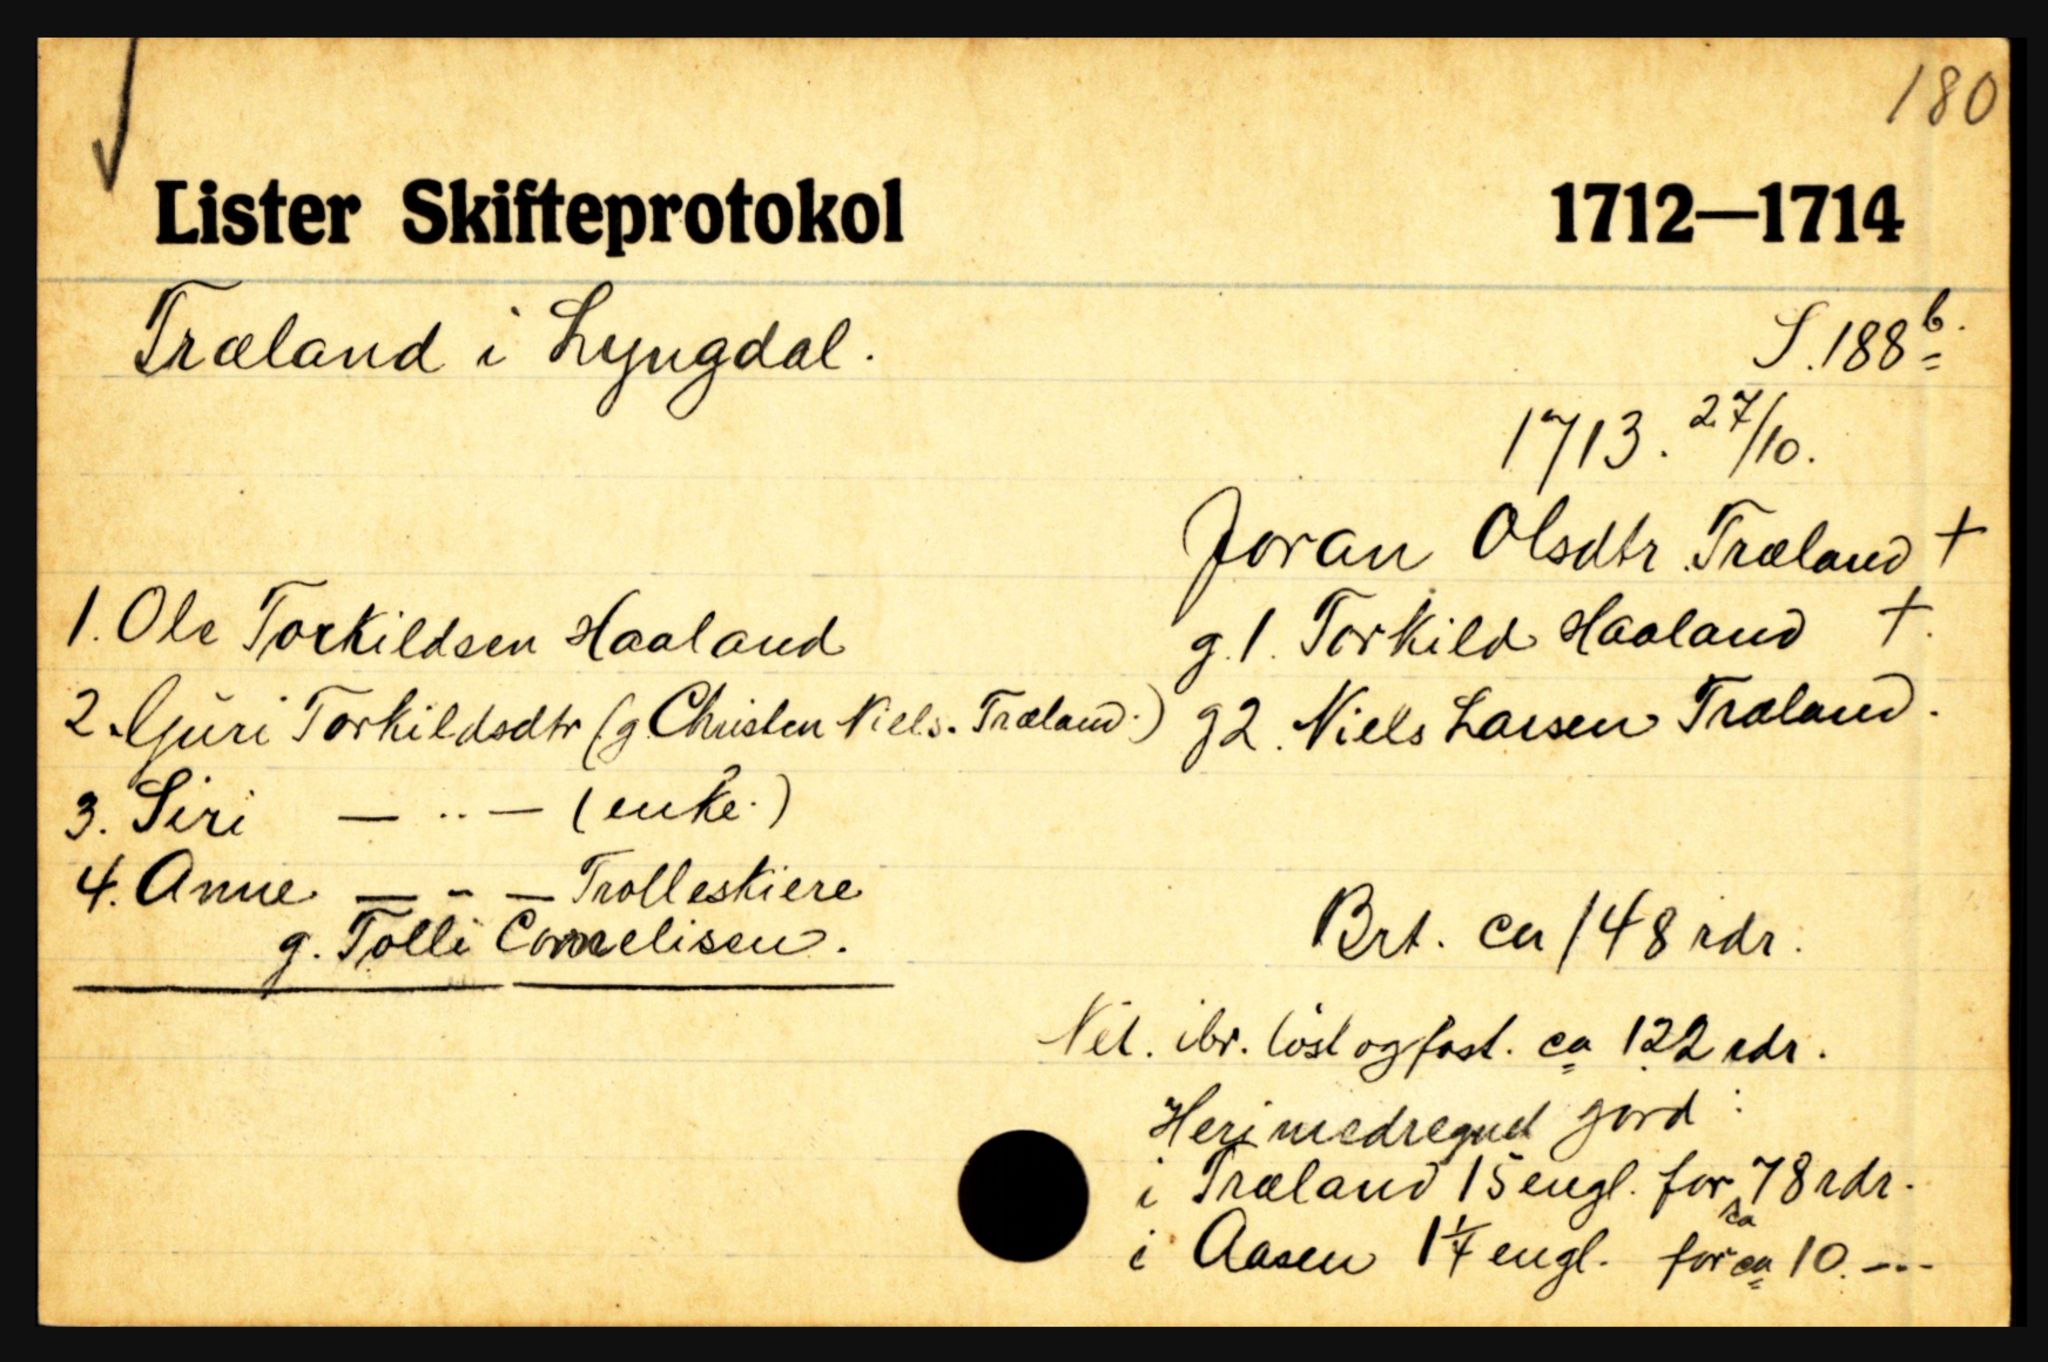 180
Lister Skifteprotokol 1712—1714
Træland i Lyngdal.
S. 188 b.
1713. 27/10.
Joran Olsdtr Træland †
g. 1. Torkild Haaland †.
g 2. Niels Larsen Træland.
1. Ole Torkildsen Haaland
2. Guri Torkildsdtr (g. Christen Niels. Træland.)
3. Siri — .. — (enke.)
4. Anne — - — Trolleskiere
g. Tolli Cornelisen.
Brt. ca 148 rdr.
Net. ibr. löst og fast. ca 122 rdr.
Heri medregnet jord:
i Træland 15 engl. for ca 78 rdr.
i Aasen 1 1/7 engl. for ca 10. ---